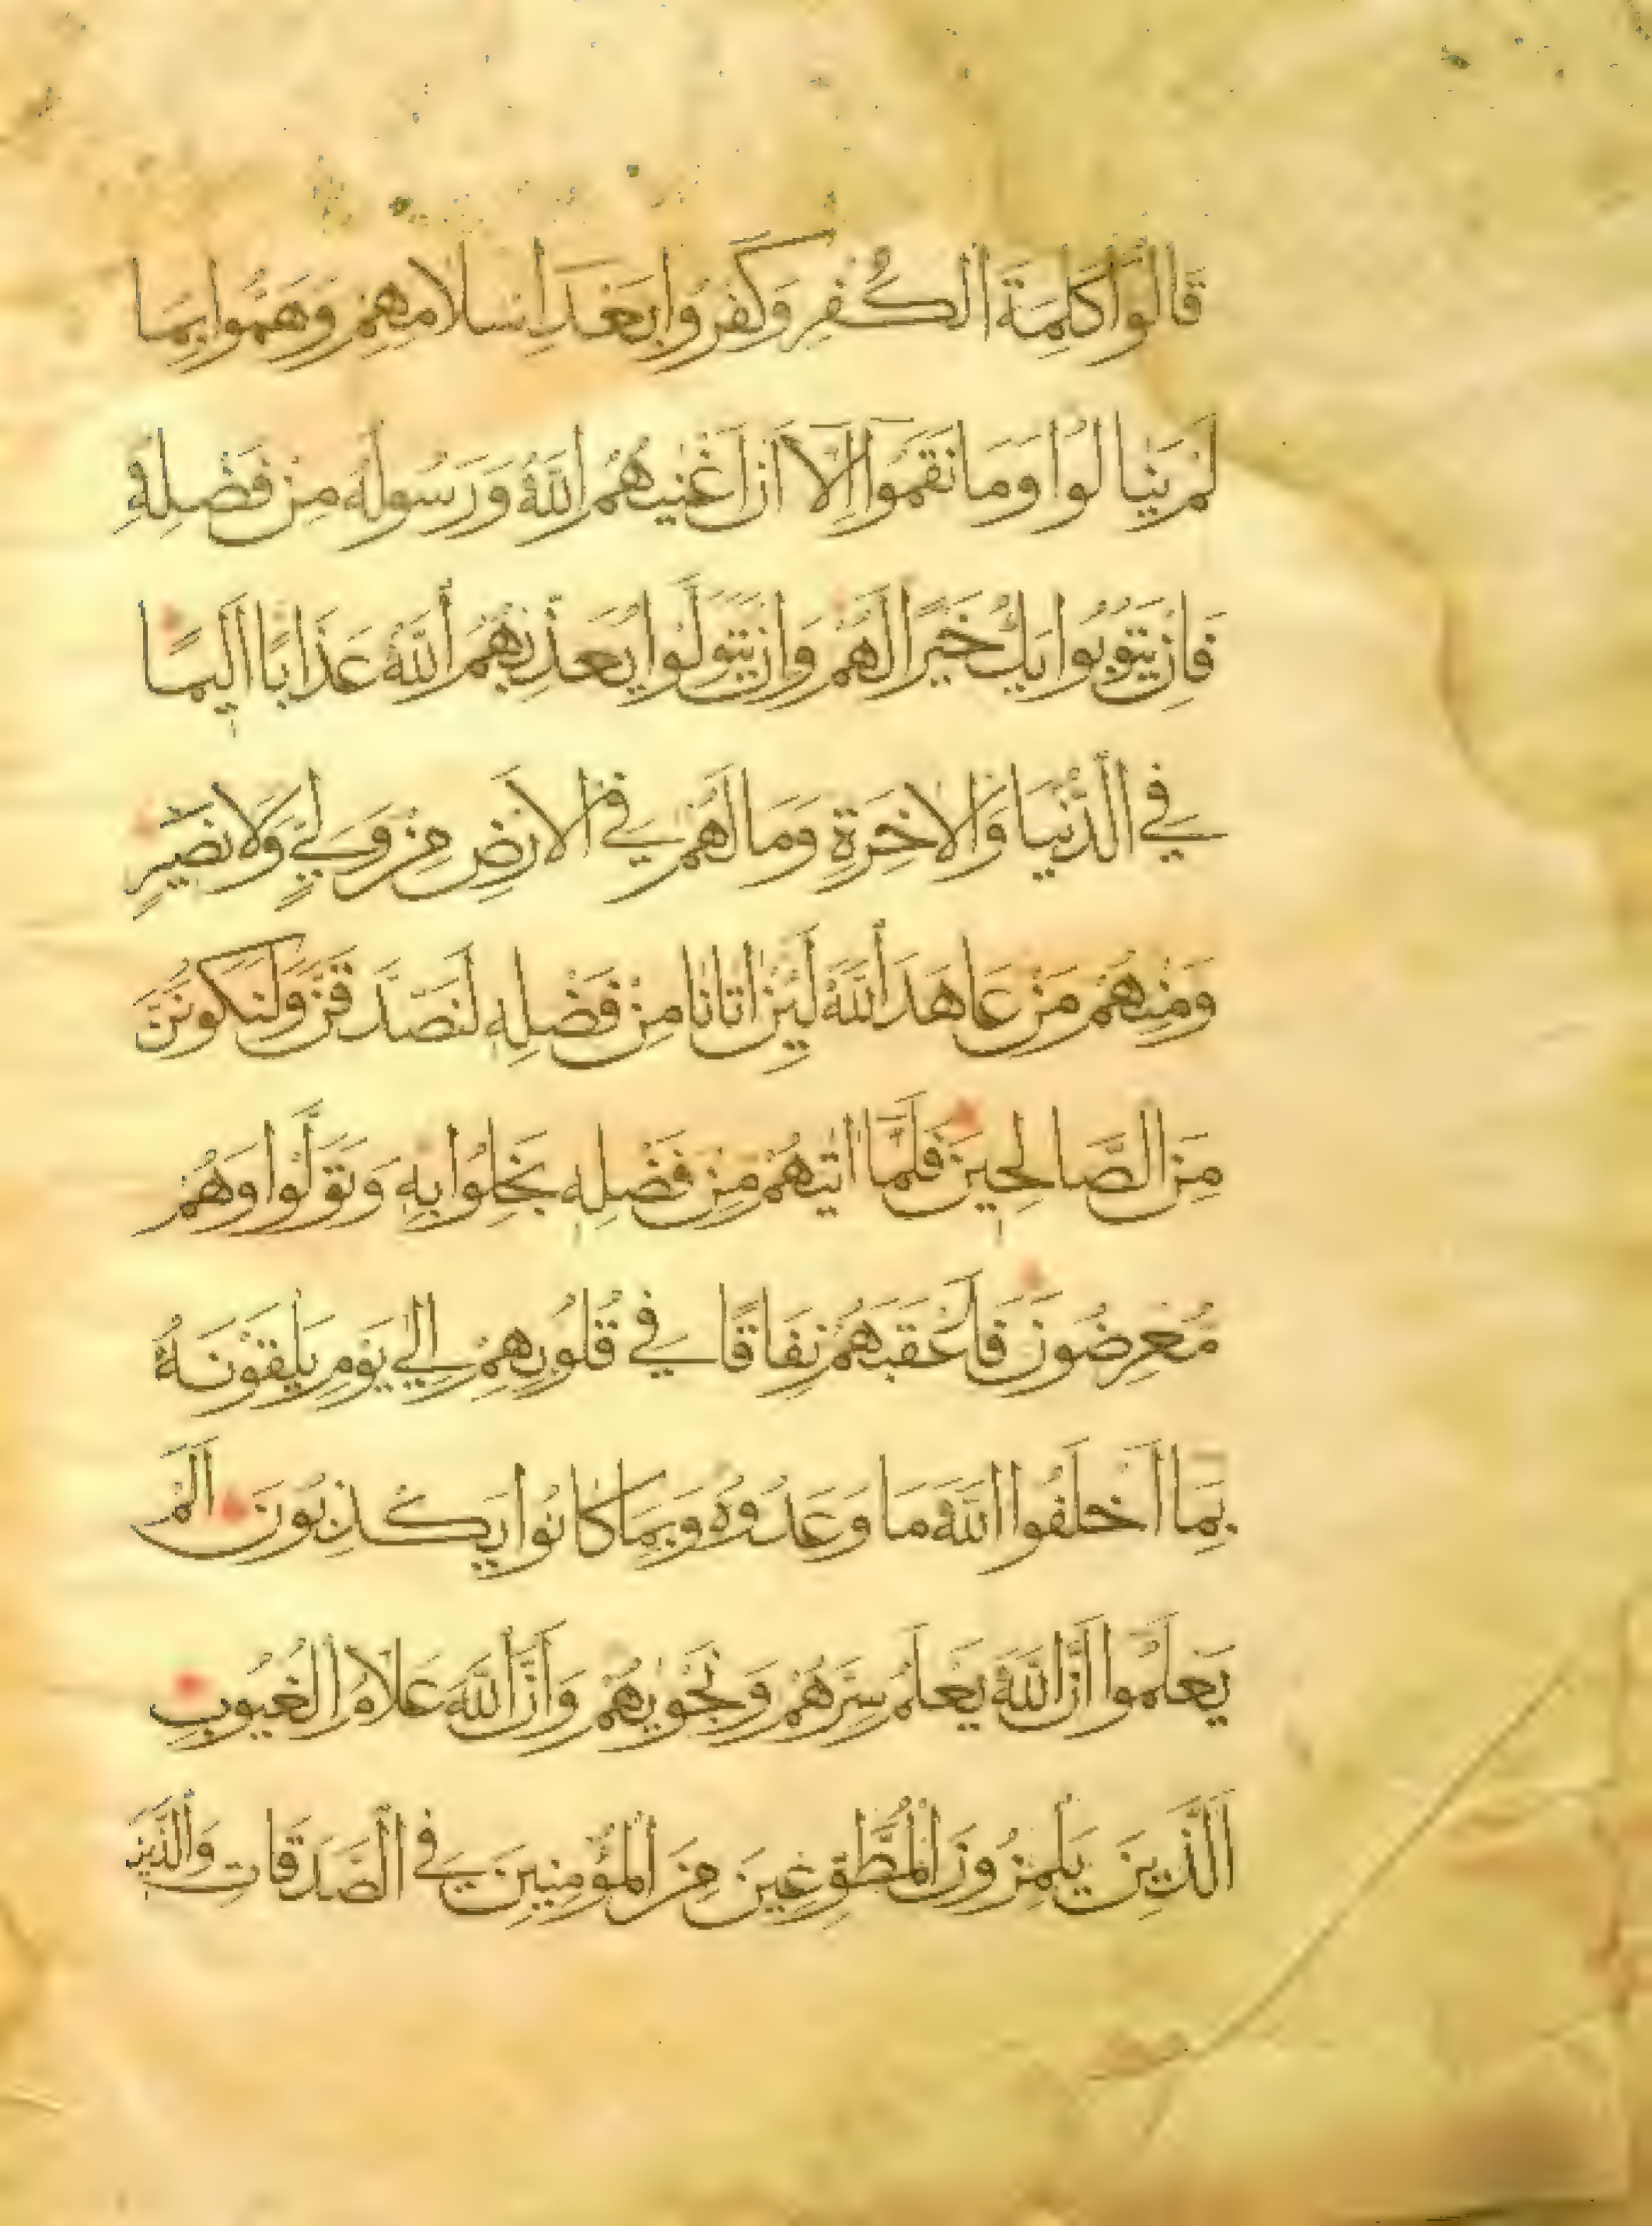 قَالُوا كَلِمَةَ الْكُفْرِ وَكَفَرُوا بَعْدَ إِسْلَامِهِمْ وَهَمُّوا بِمَا
لَمْ يَنَالُوا وَمَا نَقَمُوا إِلَّا أَنْ أَغْنٰيهُمُ اللَّهُ وَرَسُولُهُ مِنْ فَضْلِهِ
فَإِنْ يَتُوبُوا يَكُ خَيْرًا لَهُمْ وَإِنْ يَتَوَلَّوْا يُعَذِّبْهُمُ اللَّهُ عَذَابًا أَلِيمًا
فِي الدُّنْيَا وَالْآخِرَةِ وَمَا لَهُمْ فِي الْأَرْضِ مِنْ وَلِيٍّ وَلَا نَصِيرٍ
وَمِنْهُمْ مَنْ عَاهَدَ اللَّهَ لَئِنْ اٰتَانَا مِنْ فَضْلِهِ لَنَصَّدَّقَنَّ وَلَنَكُونَنَّ
مِنَ الصَّالِحِينَ فَلَمَّا اٰتٰيهُمْ مِنْ فَضْلِهِ بَخِلُوا بِهِ وَتَوَلَّوْا وَهُمْ
مُعْرِضُونَ فَأَعْقَبَهُمْ نِفَاقًا فِي قُلُوبِهِمْ إِلٰي يَوْمِ يَلْقَوْنَهُ
بِمَا أَخْلَفُوا اللَّهَ مَا وَعَدُوهُ وَبِمَا كَانُوا يَكْذِبُونَ أَلَمْ
يَعْلَمُوا أَنَّ اللَّهَ يَعْلَمُ سِرَّهُمْ وَنَجْوٰيهُمْ وَأَنَّ اللَّهَ عَلَّامُ الْغُيُوبِ
الَّذِينَ يَلْمِزُونَ الْمُطَّوِّعِينَ مِنَ الْمُؤْمِنِينَ فِي الصَّدَقَاتِ وَالَّذِينَ